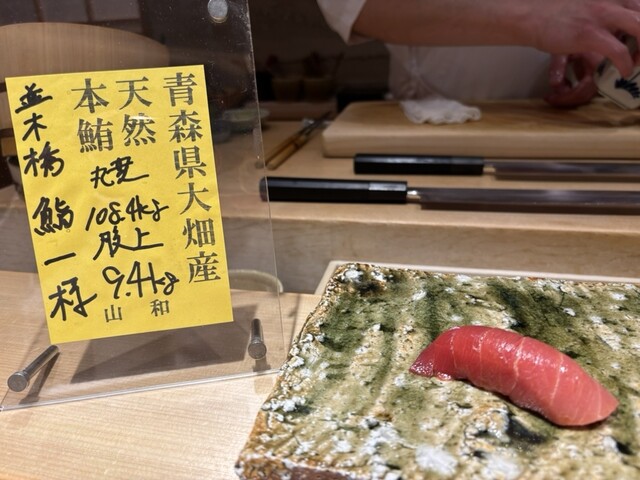 青森県大畑産
天然
本鮪
108.4kg
腹上
9.4kg
山和
並木橋 鮨一様